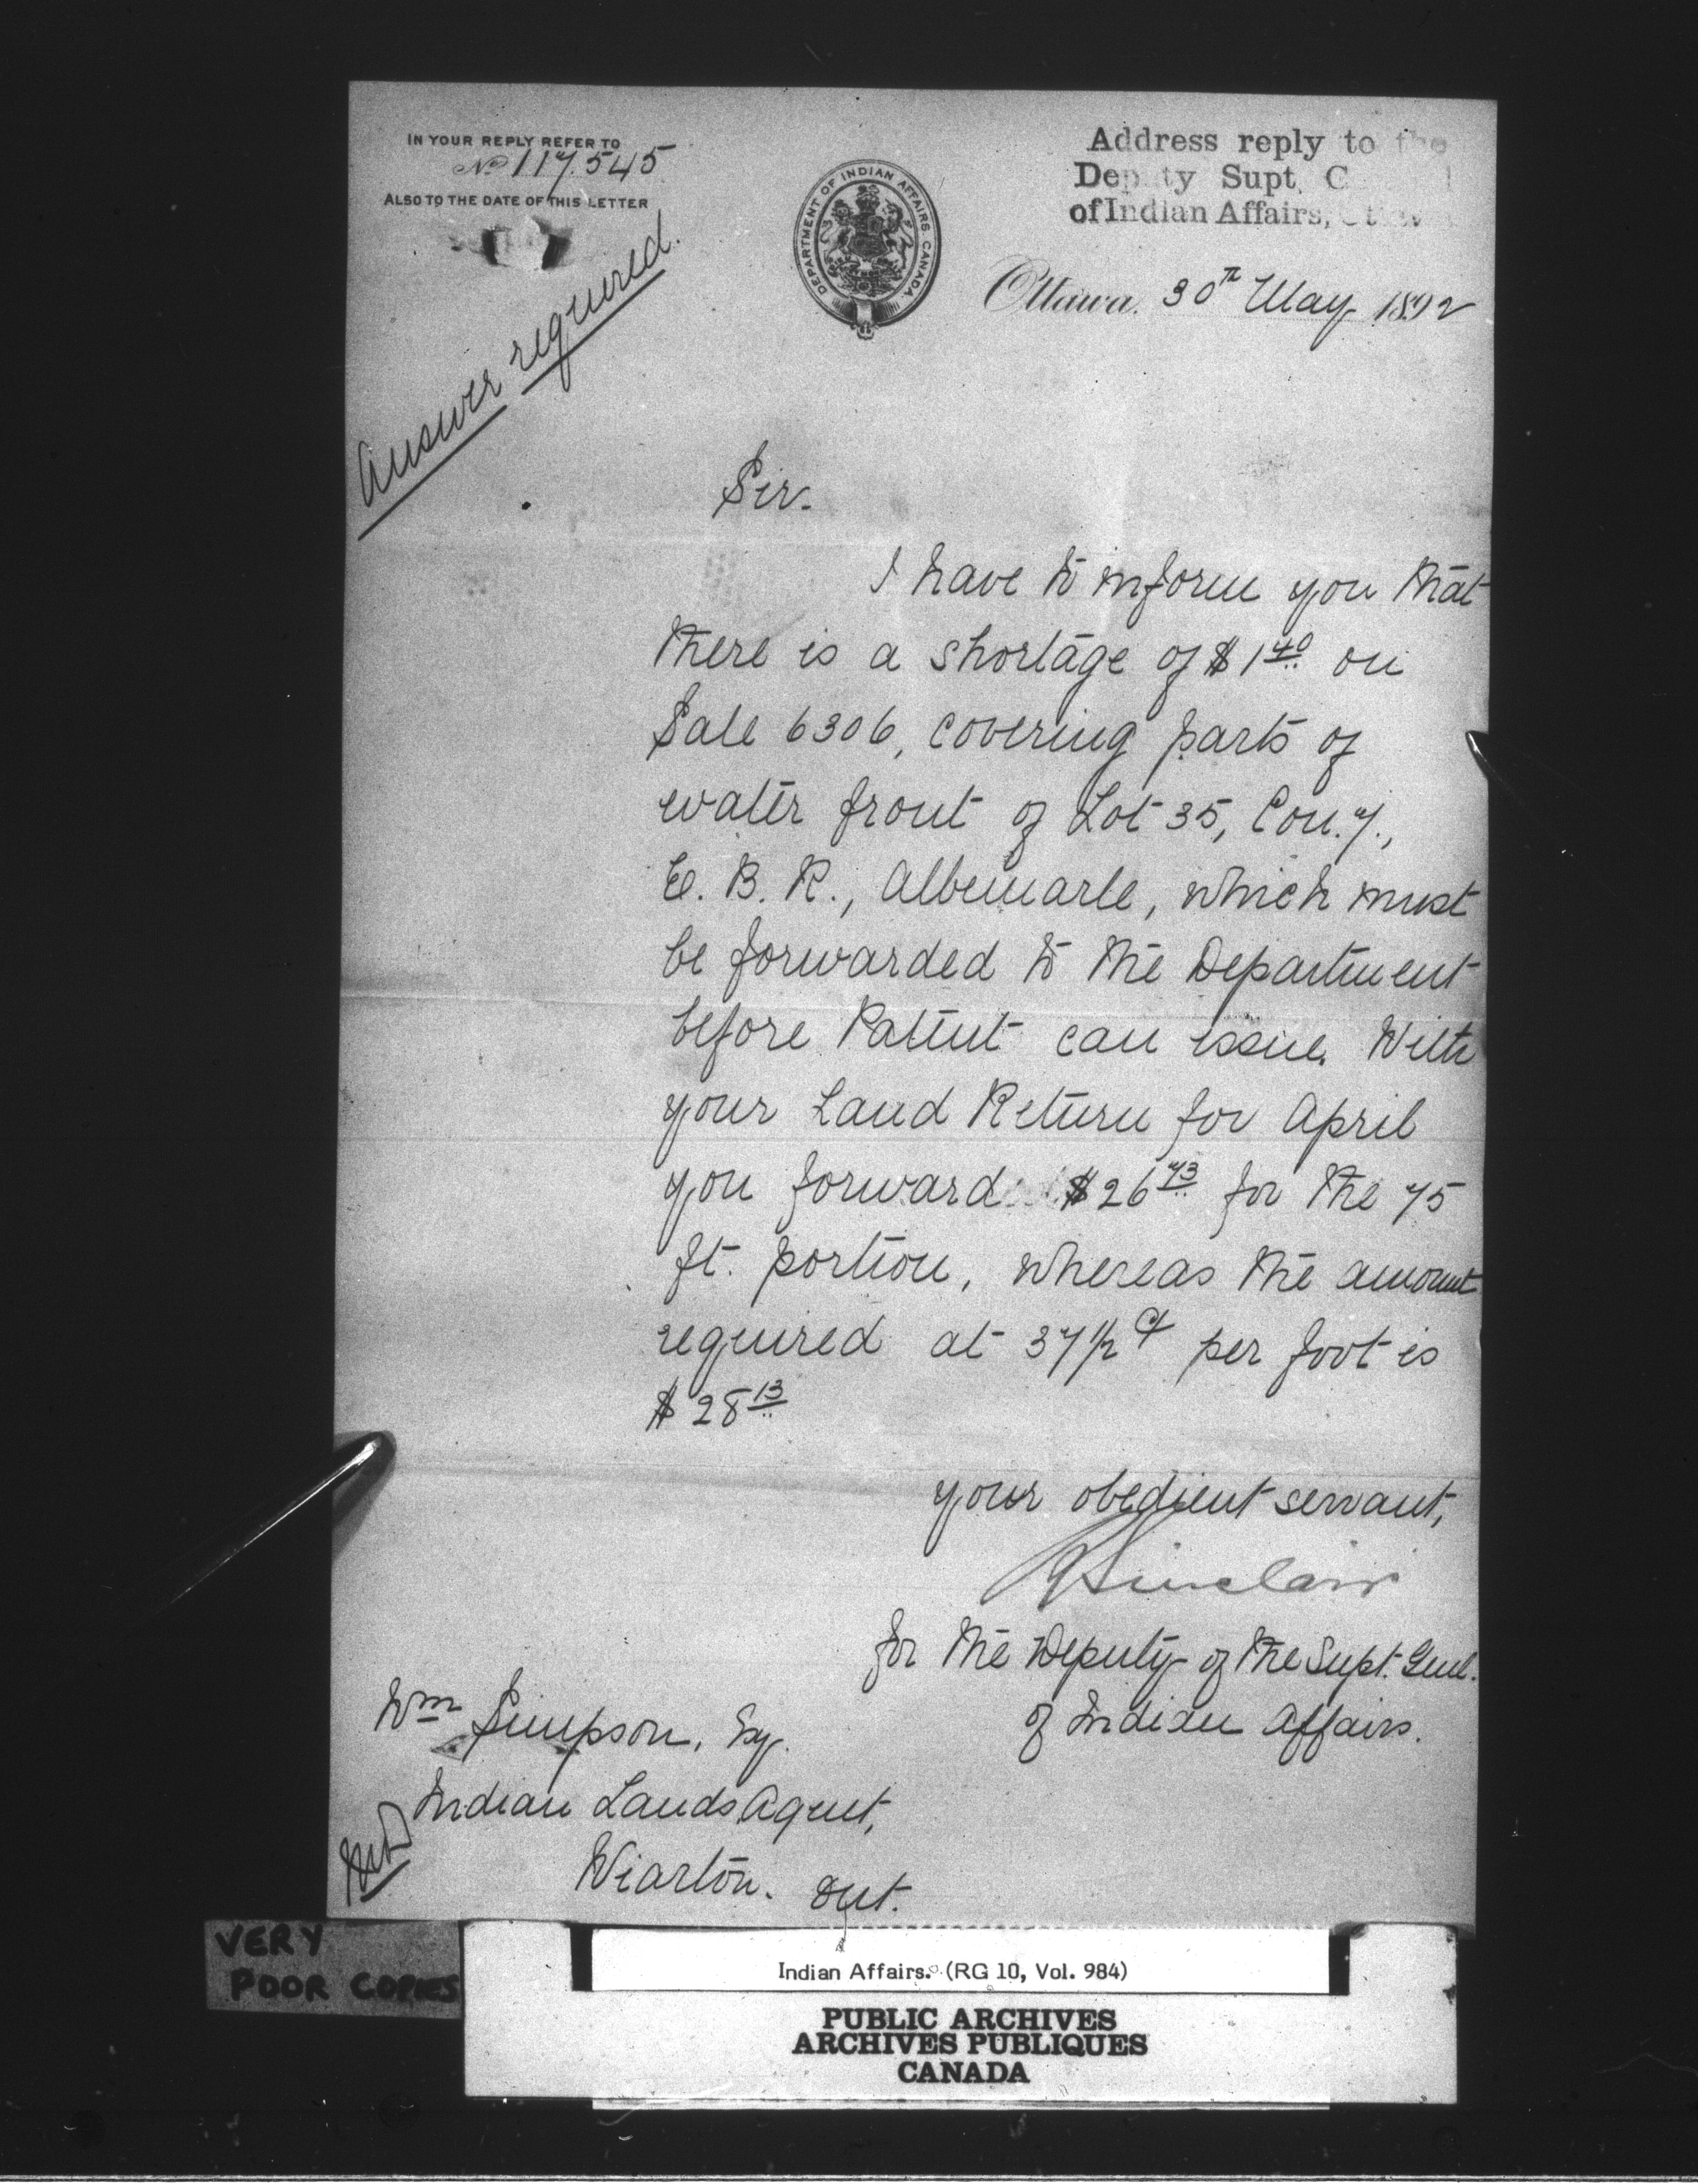 IN YOUR REPLY REFER TO
No 117.545
ALSO TO THE DATE OF THIS LETTER
Address reply to the
Deputy Supt. G
of Indian Affairs,
DEPARTMENT OF INDIAN AFFAIRS. CANADA.
Ottawa. 30th May 1892
Answer required.
Sir.
I have to inform you that
there is a shortage of $1 40 on
Sale 6306, covering parts of
water front of Lot 35, Con. 7.,
E. B. R., Albemarle, which must
be forwarded to the Department
before Patent can issue. With
your Land Return for April
you forward $26 73 for the 75
ft. portion, whereas the amount
required at 37 1/2 ¢ per foot is
$28 13
your obedient servant,
Sinclair
for the Deputy of the Supt. Genl.
of Indian Affairs.
Wm Simpson, Esq.
Indian Lands Agent,
Wiarton. Ont.
VERY
POOR COPIES
Indian Affairs. (RG 10, Vol. 984)
PUBLIC ARCHIVES
ARCHIVES PUBLIQUES
CANADA